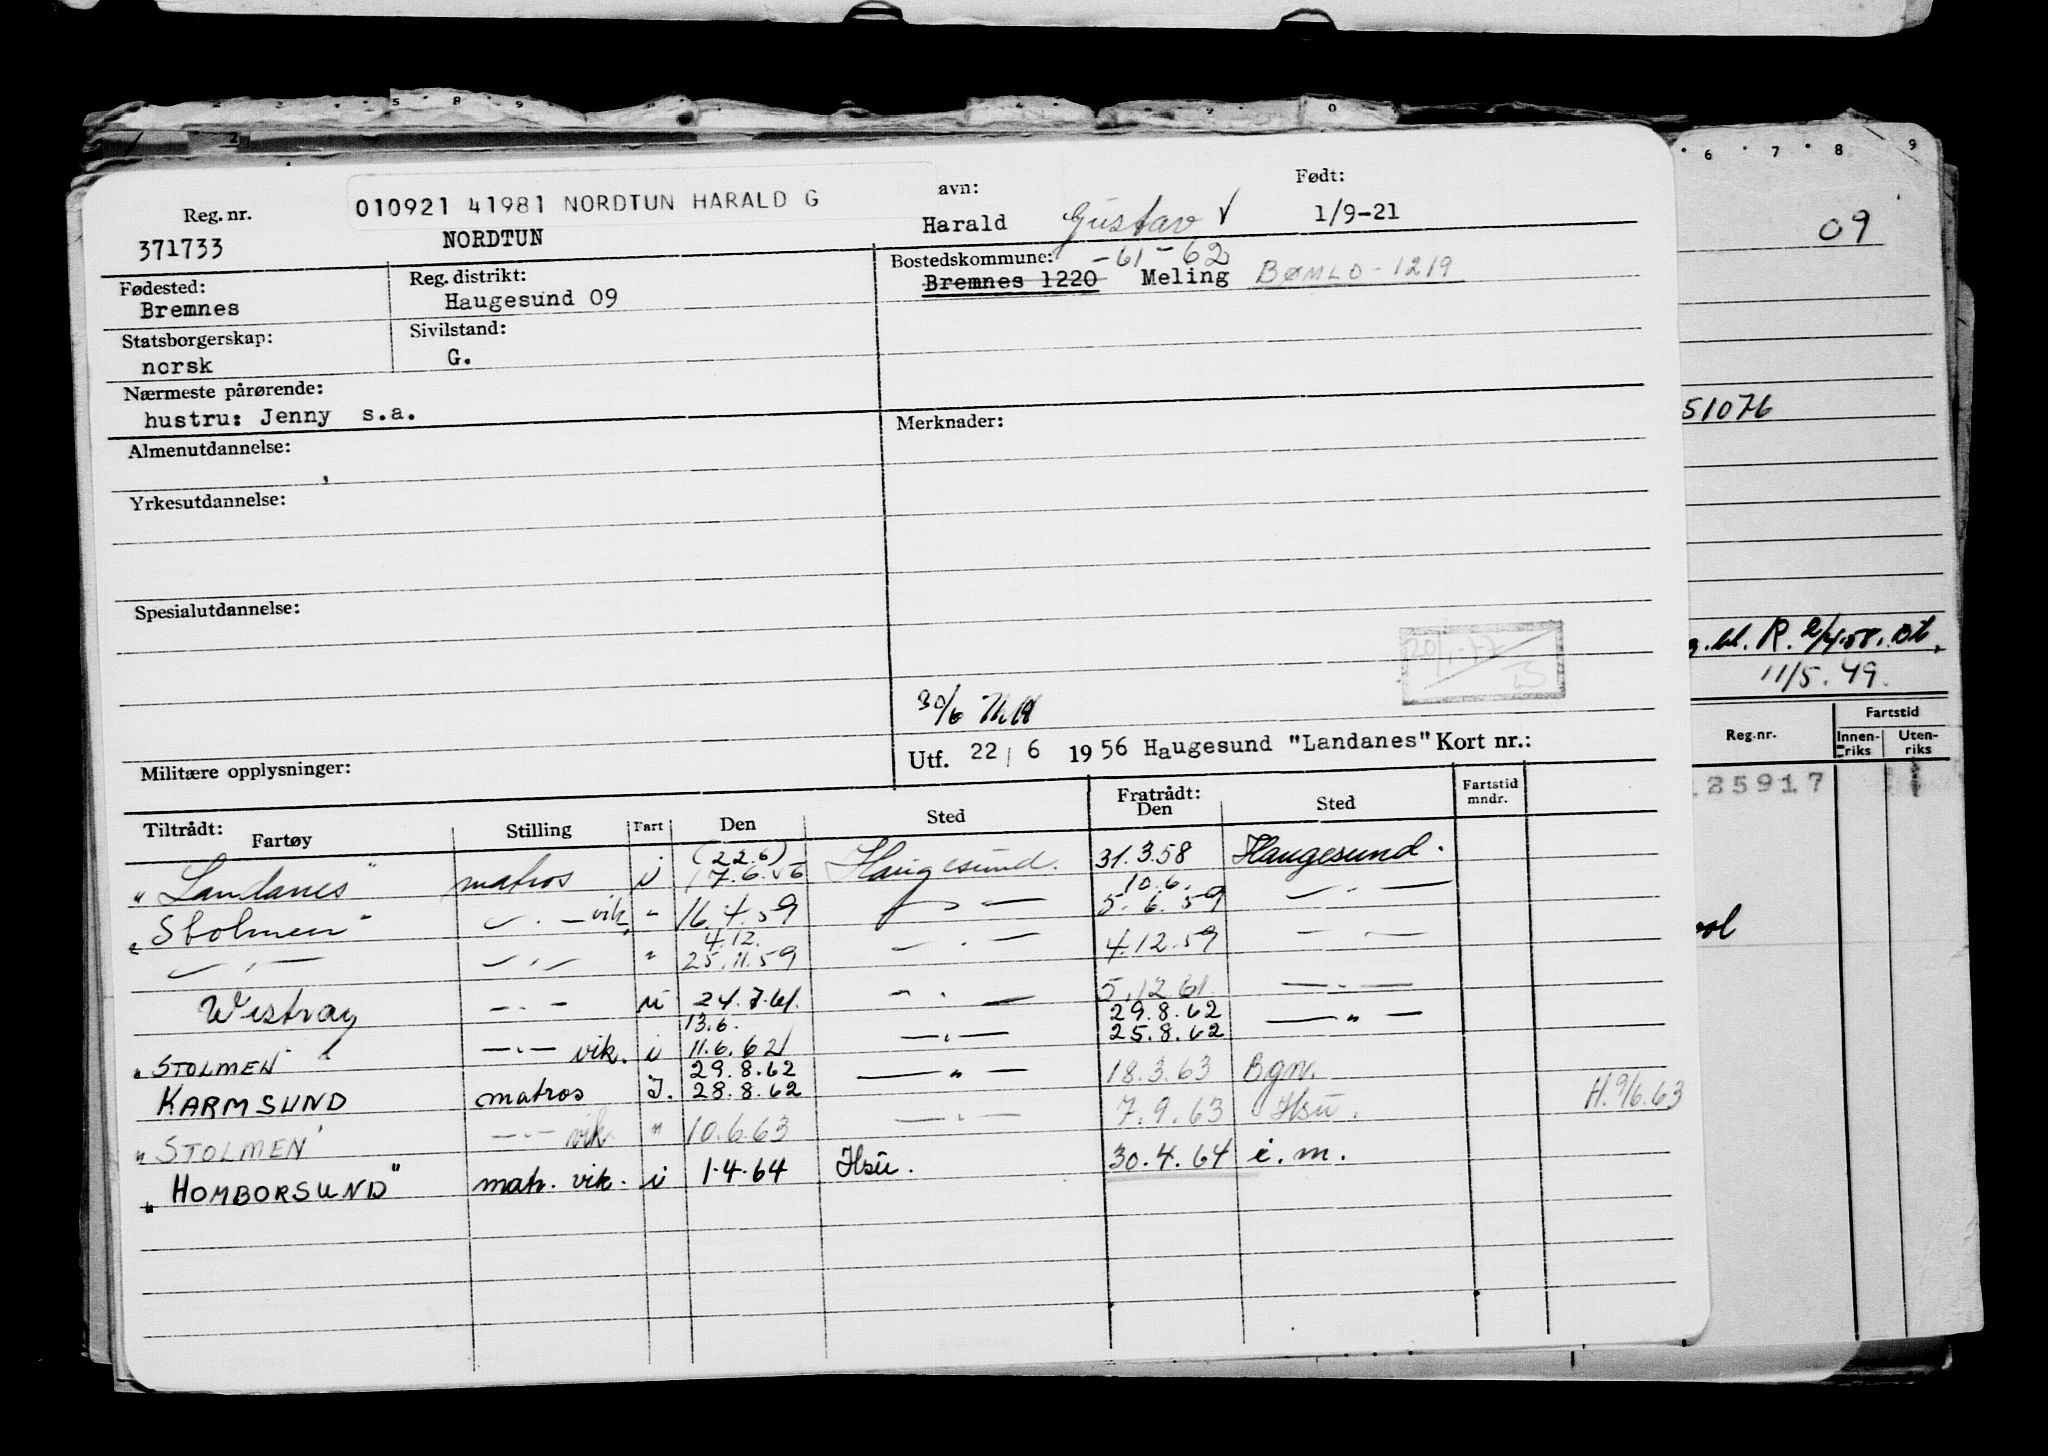 010921 41981 NORDTUN HARALD G
avn:
Født:
Reg. nr.
371733
NORDTUN
Harald Gustav √
1/9-21
09
Fødested:
Bremnes
Reg. distrikt:
Haugesund 09
Bostedskommune: -61-62
Bremnes 1220 Meling BØMLO - 1219
Statsborgerskap:
norsk
Sivilstand:
G.
Nærmeste pårørende:
hustru: Jenny s.a.
51076
Almenutdannelse:
Merknader:
Yrkesutdannelse:
Spesialutdannelse:
20/1-77
B
30/6
11/5.49.
Militære opplysninger:
Utf. 22/6 1956 Haugesund "Landanes" Kort nr.:
Reg.nr.
Fartstid
Innen-riks
Uten-riks
Tiltrådt:
Fartøy Stilling Fart Den Sted Fratrådt: Den Sted Fartstid mndr.
(22.6)
"Landanes" matros i 17.6.56 Haugesund. 31.3.58 Haugesund.
10.6.
"Stolmen" — " — vik. " 16.4.59 — " — 5.6.59 — " —
4.12.
— " — — " — " 25.11.59 — " — 4.12.59 — " —
Westray — " — u 24.7.61. — " — 5.12.61. — " —
13.6. 29.8.62
"STOLMEN" — " — vik. i 11.6.62 — " — 25.8.62 — " —
29.8.62
KARMSUND matros I. 28.8.62 — " — 18.3.63 Bgn.
"STOLMEN" — " — vik. " 10.6.63 — " — 7.9.63 Hsu. H.9/6.63
"HOMBORSUND" matr. vik. i 1.4.64 Hsu. 30.4.64 i.m.